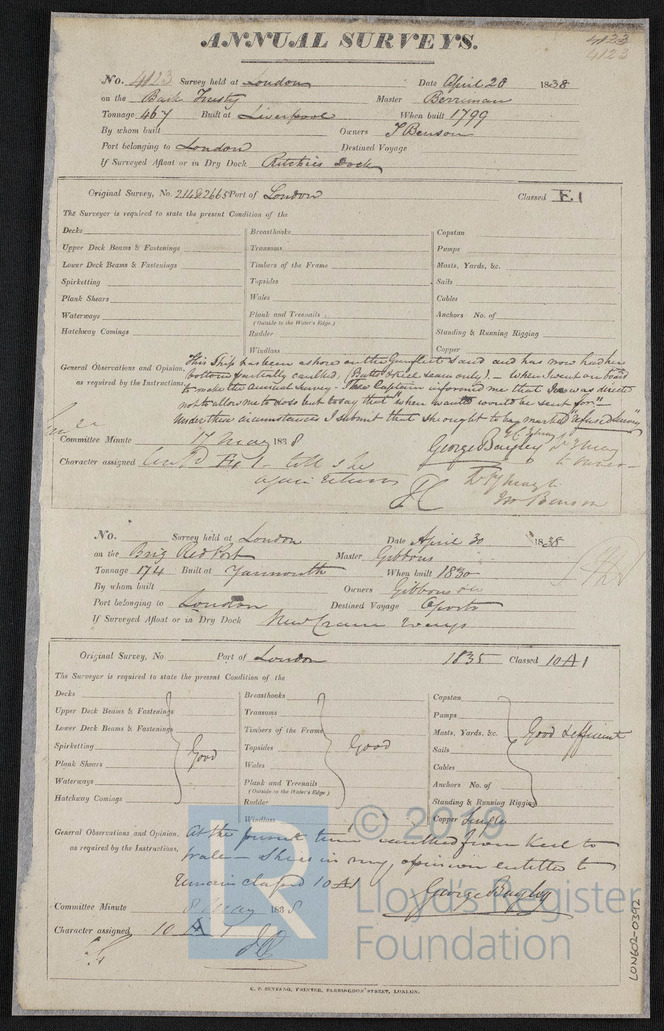 ANNUAL SURVEYS.
4133
4123
No. 4123 Survey held at London Date April 20 1838
on the Bark Trusty Master Berriman
Tonnage 467 Built at Liverpool When built 1799
By whom built Owners J Benson
Port belonging to London Destined Voyage
If Surveyed Afloat or in Dry Dock Ritchies Dock
Original Survey, No. 2148 2665 Port of London Classed E 1
The Surveyor is required to state the present Condition of the
Decks Breasthooks Capstan
Upper Deck Beams & Fastenings Transoms Pumps
Lower Deck Beams & Fastenings Timbers of the Frame Masts, Yards, &c.
Spirketting Topsides Sails
Plank Shears Wales Cables
Waterways Plank and Treenails Anchors No. of
(Outside to the Water's Edge.)
Hatchway Comings Rudder Standing & Running Rigging
Windlass Copper
General Observations and Opinion, This Ship has been ashore on the Gunfleet Sand and has now had her
as required by the Instructions bottom partially caulked, (Butts & Keel seam only) - When I went on board
to make the annual Survey - The Captain informed me that he was directed
not to allow me to do so but to say that "when wanted would be sent for"
Under these circumstances I submit that she ought to be marked "refused Survey"
George Bayley
Committee Minute 17 May 1838
Character assigned E 1 till she
again returns
Mr Benson
No. Survey held at London Date April 30 1838
on the Brig Red Port Master Gibbons
Tonnage 174 Built at Yarmouth When built 1830
By whom built Owners Gibbons & Co
Port belonging to London Destined Voyage Oporto
If Surveyed Afloat or in Dry Dock New Crane Wapping
Original Survey, No Port of London 1835 Classed 10 A 1
The Surveyor is required to state the present Condition of the
Decks Breasthooks Capstan
Upper Deck Beams & Fastenings Transoms Pumps
Lower Deck Beams & Fastenings Timbers of the Frame Masts, Yards, &c. Good & efficient
Spirketting Good Topsides Good Sails
Plank Shears Wales Cables
Waterways Plank and Treenails Anchors No. of
(Outside to the Water's Edge)
Hatchway Comings Rudder Standing & Running Rigging
Windlass Copper Single
General Observations and Opinion, At the present time caulked from Keel to
as required by the Instructions, wales - She is in my opinion entitled to
remain classed 10 A1
George Bayley
Committee Minute 8 May 1838
Character assigned 10 A 1
C. F. SEYFANG, PRINTER, FARRINGDON STREET, LONDON.
LON602-0392
© 2019
LR
Lloyd's Register
Foundation